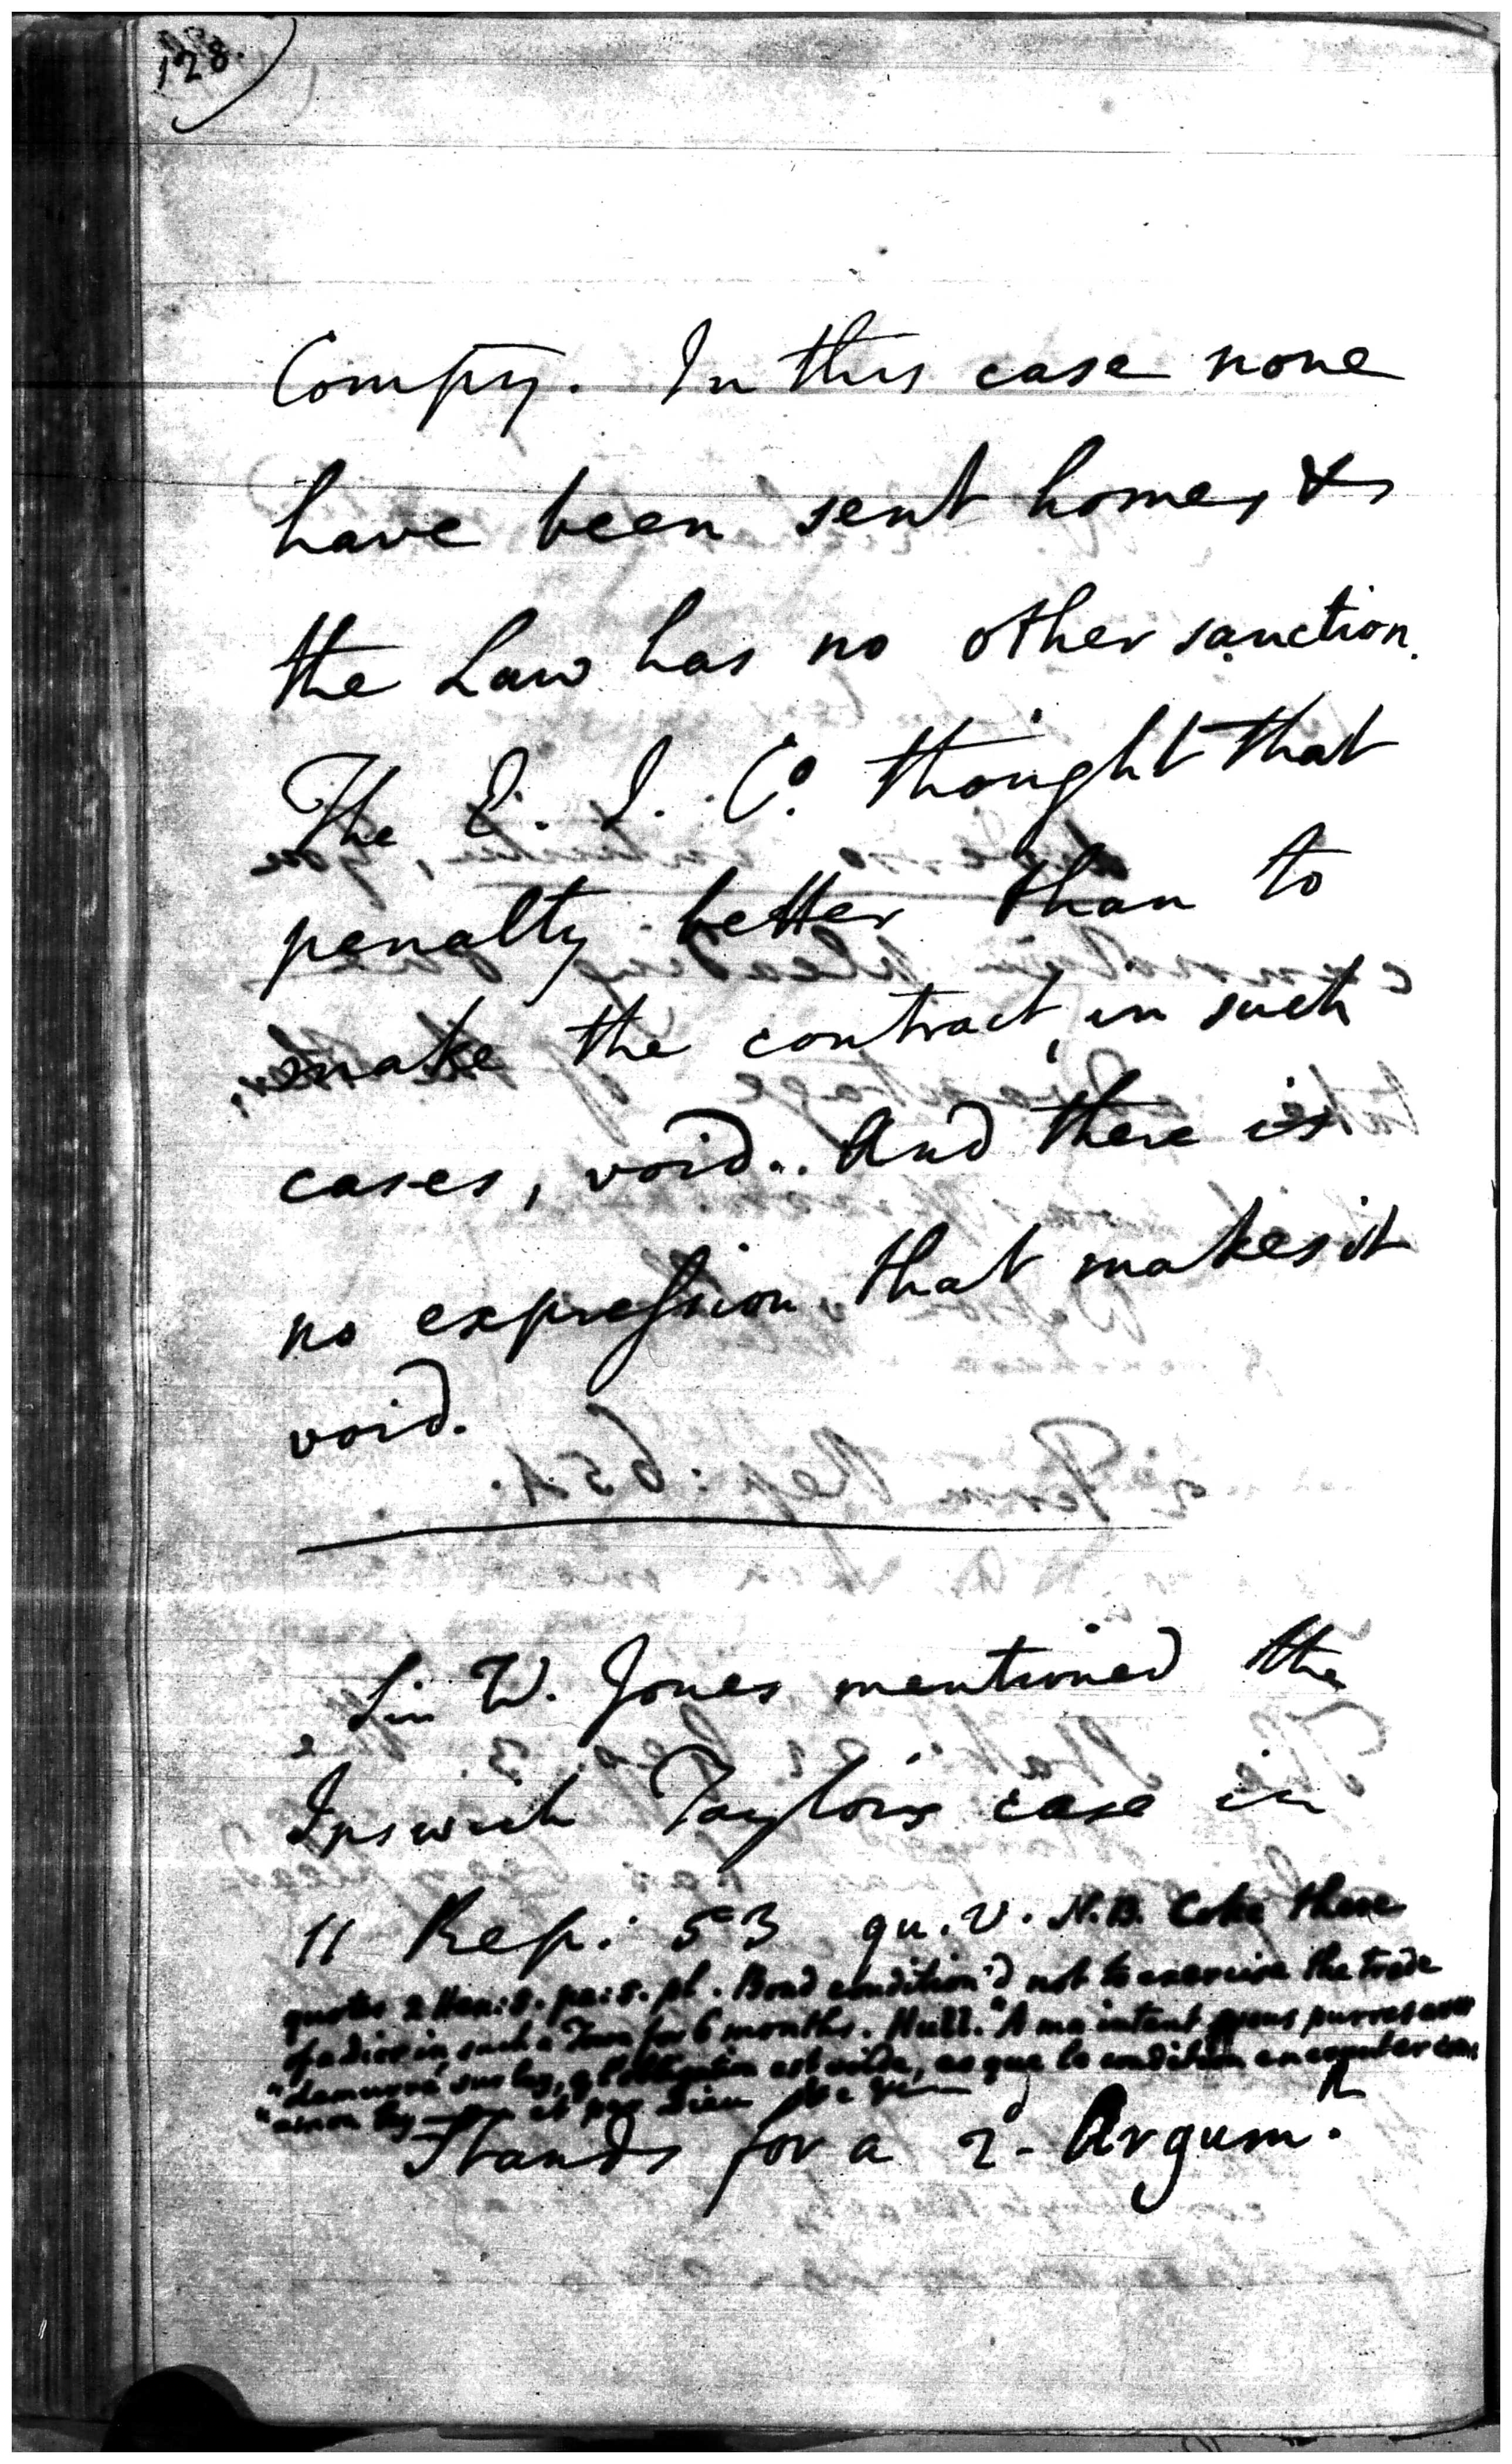 128.
Compy. In this case none
have been sent home, &
the Law has no other sanction.
The E. I. Co. thought that
penalty better than to
make the contract, in such
cases, void.. And there is
no expression that makes it
void.
Sir W. Jones mentioned the
Ipswich Taylors case in
11 Rep: 53 qu. v. N.B. Coke there
quotes 2 Hen: 5. pa: 5. pl. Bond condition'd not to exercise the trade
of a dier in such a Town for 6 months. Hull. "A ma intent vous purres aver
"demurré sur luy, q l'obligation est voide, eo que le condition encounter com:
"mon ley et per Dieu
Stands for a 2d Argumt.